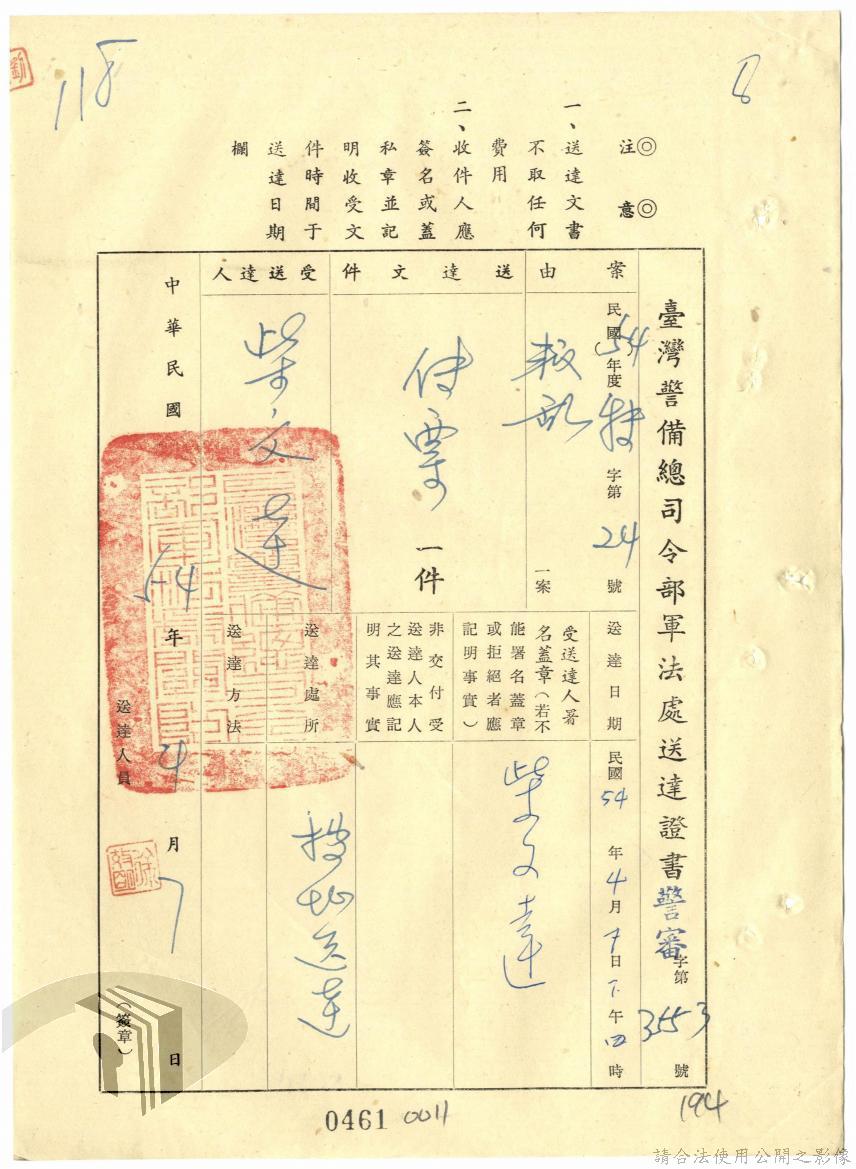 118
8
◎注意◎
一、送達文書
不取任何
費用
二、收件人應
簽名或蓋
私章並記
明收受文
件時間于
送達日期
欄
臺灣警備總司令部軍法處送達證書警審字第3553號
案由
民國(54)年度特字第24號
叛亂一案
送達文件
傳票一件
受送達人
柴文達
送達日期
民國54年4月7日下午四時
受送達人署
名蓋章(若不
能署名蓋章
或拒絕者應
記明事實)
柴文達
非交付受
送達人本人
之送達應記
明其事實
送達處所
按址送達
送達方法
中華民國54年4月7日
送達人員
(簽章)
0461
0011
194
請合法使用公開之影像